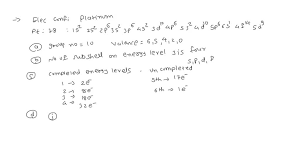 → Elec Confi Platinum
Pt: 78 : 1s² 2s² 2p⁶ 3s² 3p⁶ 4s² 3d¹⁰ 4p⁶ 5s² 4d¹⁰ 5p⁶ 6s¹ 4f¹⁴ 5d⁹
(a) group no = 10 Valance = 6,5,4,2,0
(b) no of subshell on energy level 5 is four
s,p,d,f
(c) completed energy levels. uncompleted
1 → 2e⁻ 5th → 17e⁻
2 → 8e⁻ 6th → 1e⁻
3 → 18e⁻
4 → 32e⁻
(d) (i)